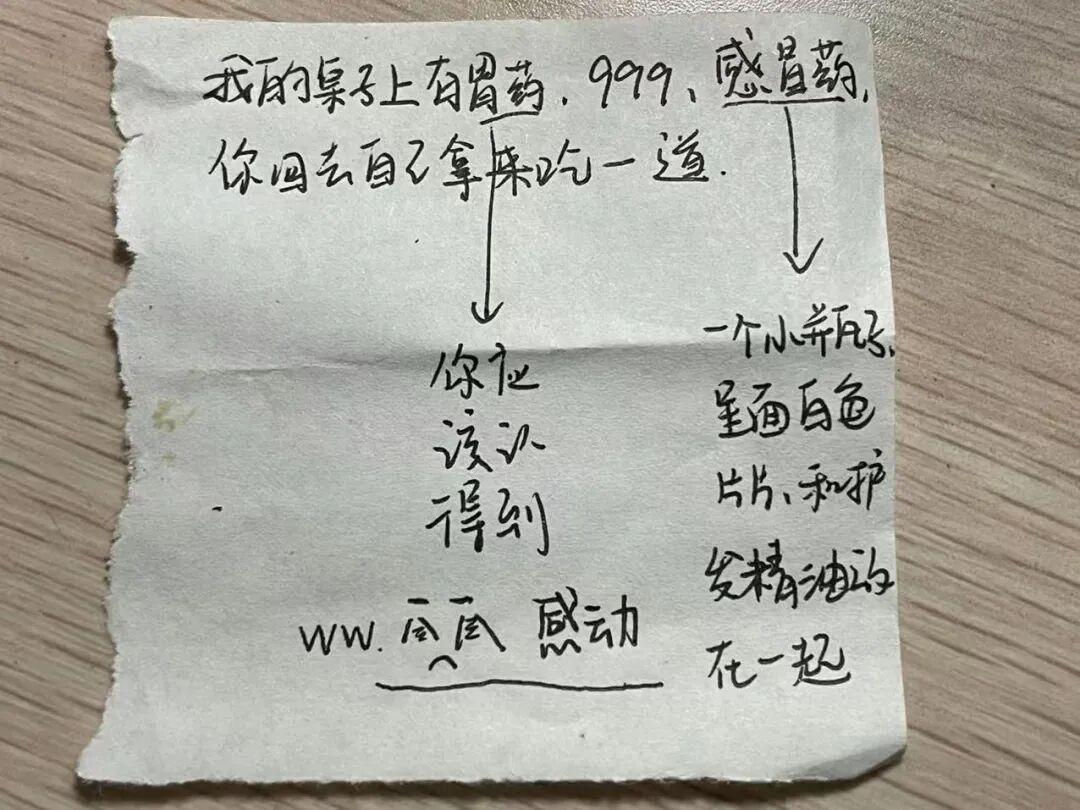 我的桌子上有胃药、999、感冒药,
你回去自己拿来吃一道.
你应
该认
得到
一个小瓶子,
里面白色
片片、和护
发精油放
在一起
WW. 感动